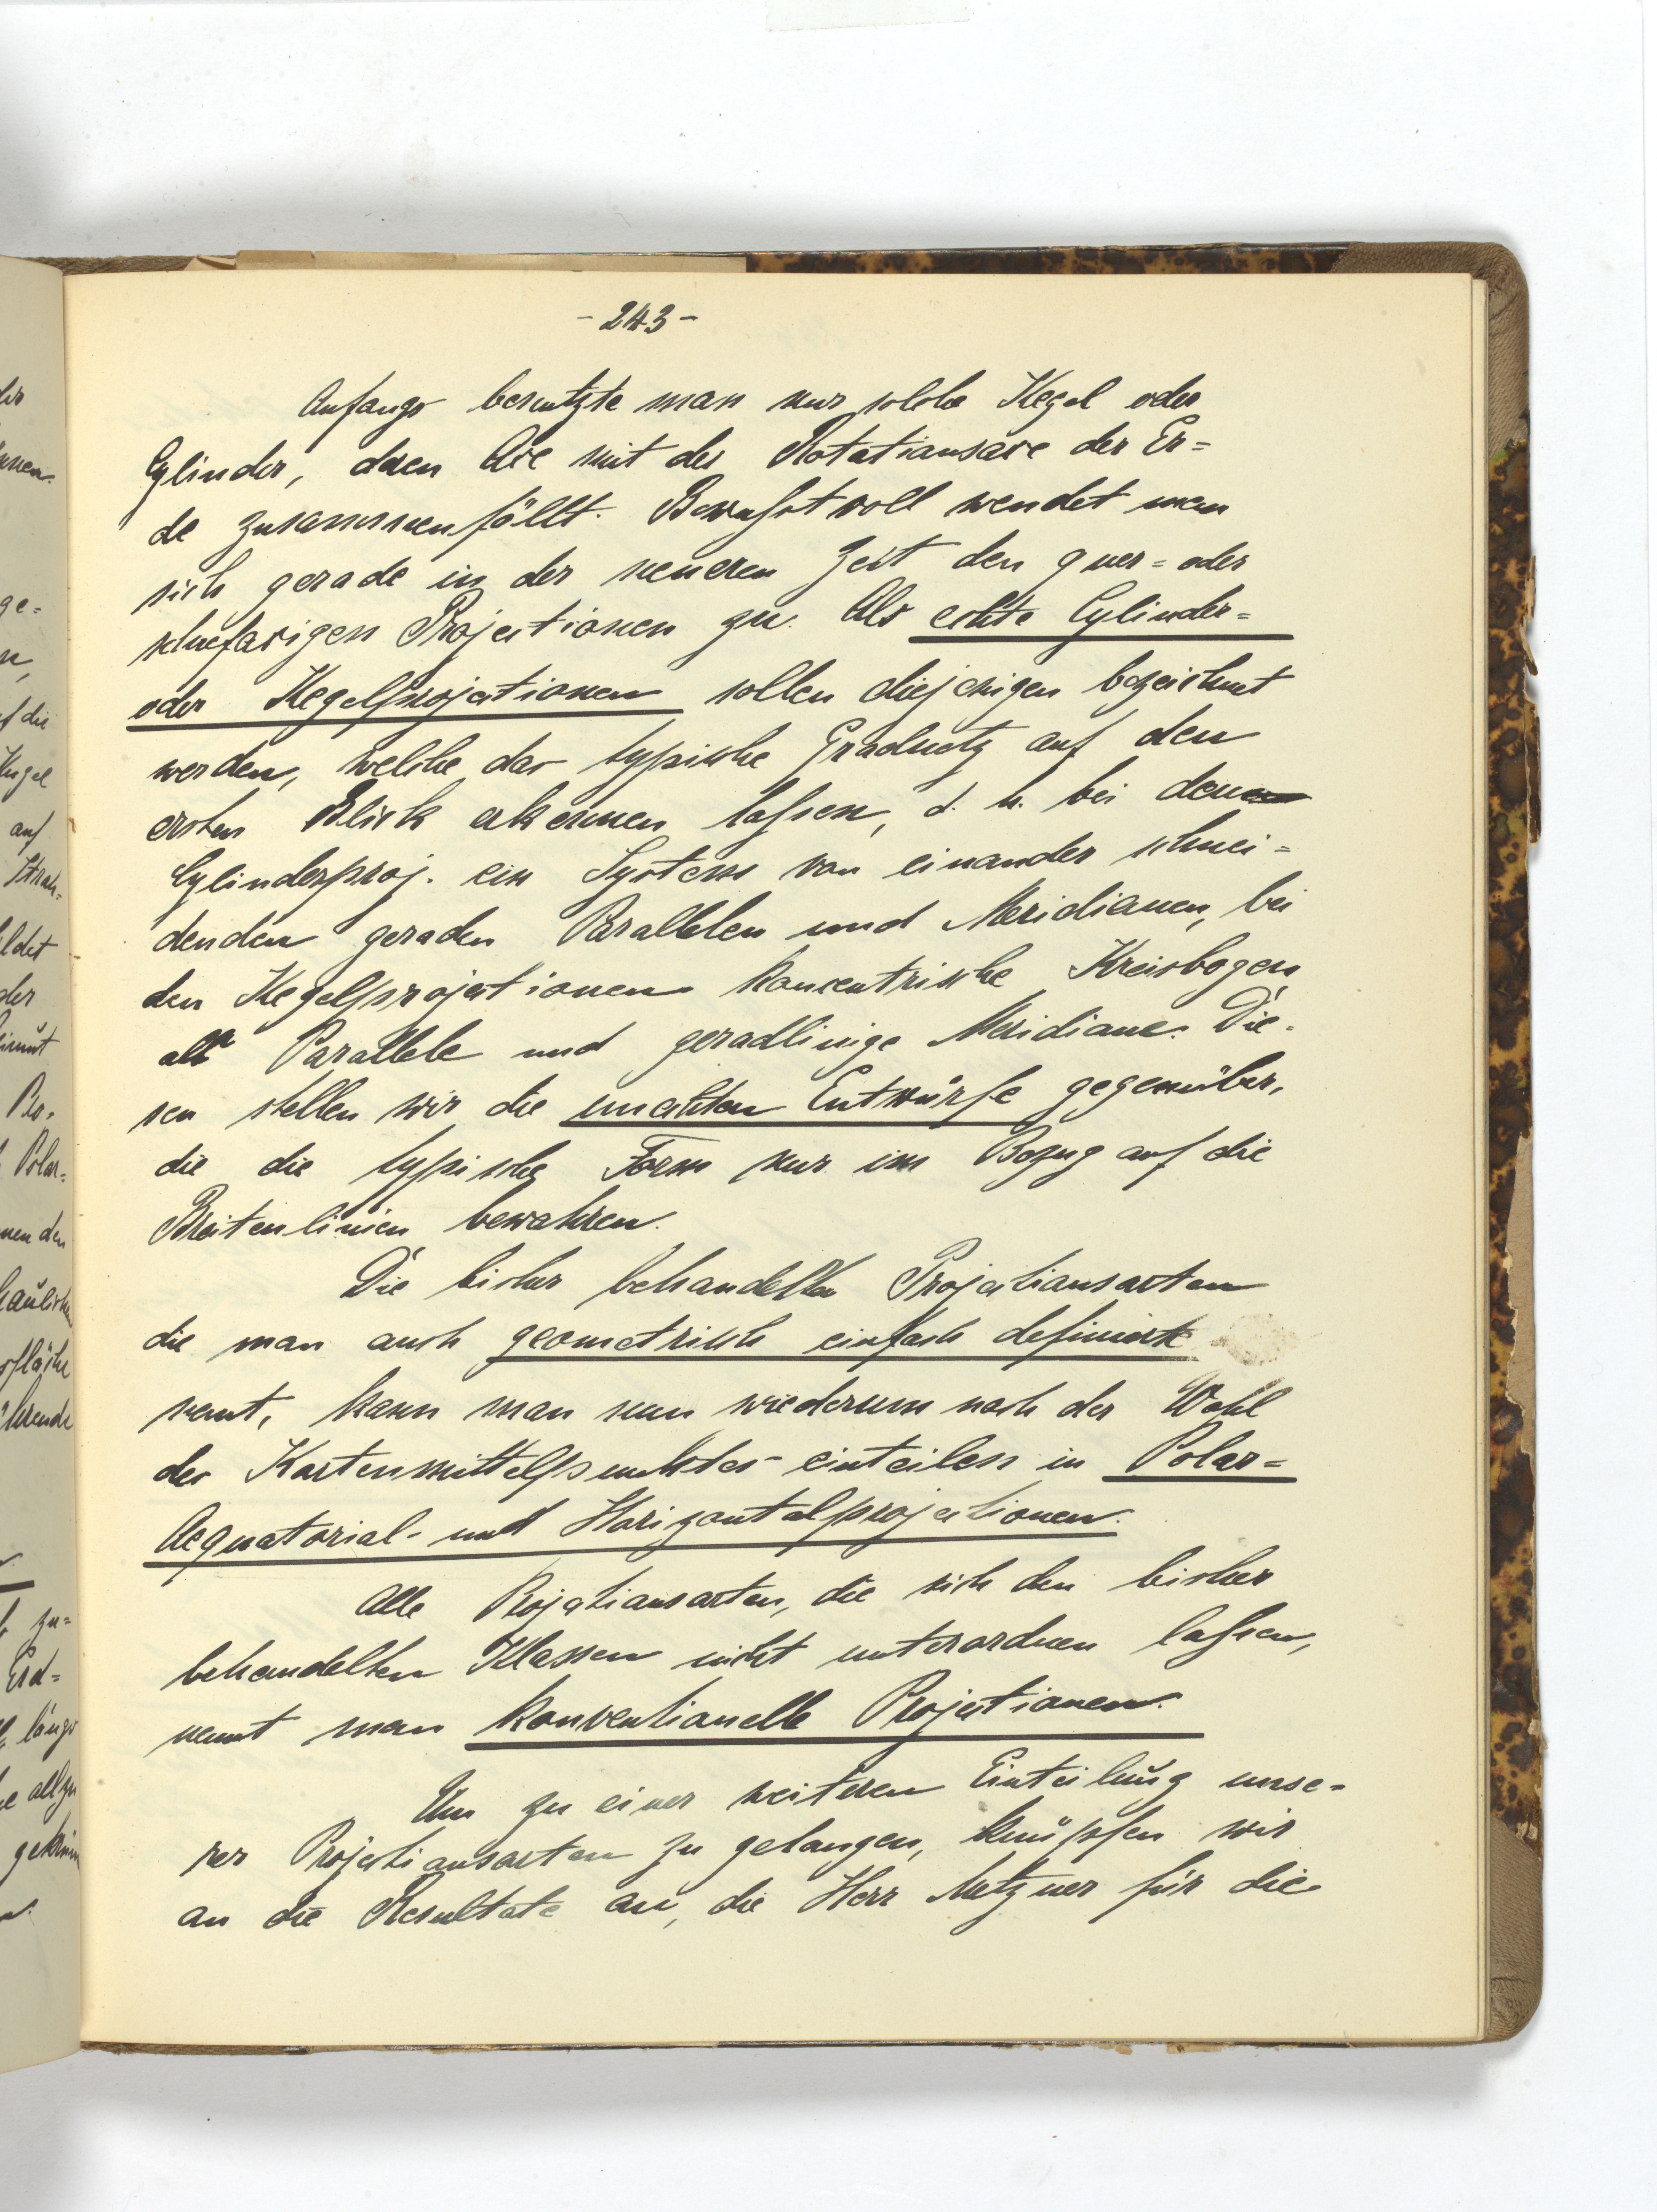 - 243 -
Anfangs benutzte man nur solche Kegel oder
Cylinder, deren Axe mit der Rotationsaxe der Er=
de zusammenfällt. Bewußtvoll wendet man
sich gerade in der neueren Zeit den quer= oder
schiefaxigen Projectionen zu. Als echte Cylinder=
oder Kegelprojectionen sollen diejenigen bezeichnet
werden, welche das typische Gradnetz auf den
ersten Blick erkennen laßen, d. h. bei den
Cylinderproj. ein System von einander schnei=
denden geraden Parallelen und Meridianen, bei
den Kegelprojectionen koncentrische Kreisbogen
als Parallele und geradlinige Meridiane. Die=
sen stellen wir die unechten Entwürfe gegenüber,
die die typische Form nur im Bezug auf die
Breitenlinien bewahren.
Die bisher behandelten Projectionsarten
die man auch geometrisch einfach definierte
nennt, kann man nun wiederum nach der Wahl
des Kartenmittelpunktes einteilen in Polar=
Aequatorial- und Horizontalprojectionen.
Alle Projectionsarten, die sich den bisher
behandelten Klassen nicht unterordnen laßen,
nennt man konventionelle Projectionen.
Um zu einer weiteren Einteilung unse=
rer Projectionsarten zu gelangen, knüpfen wir
an die Resultate an, die Herr Metzner für die